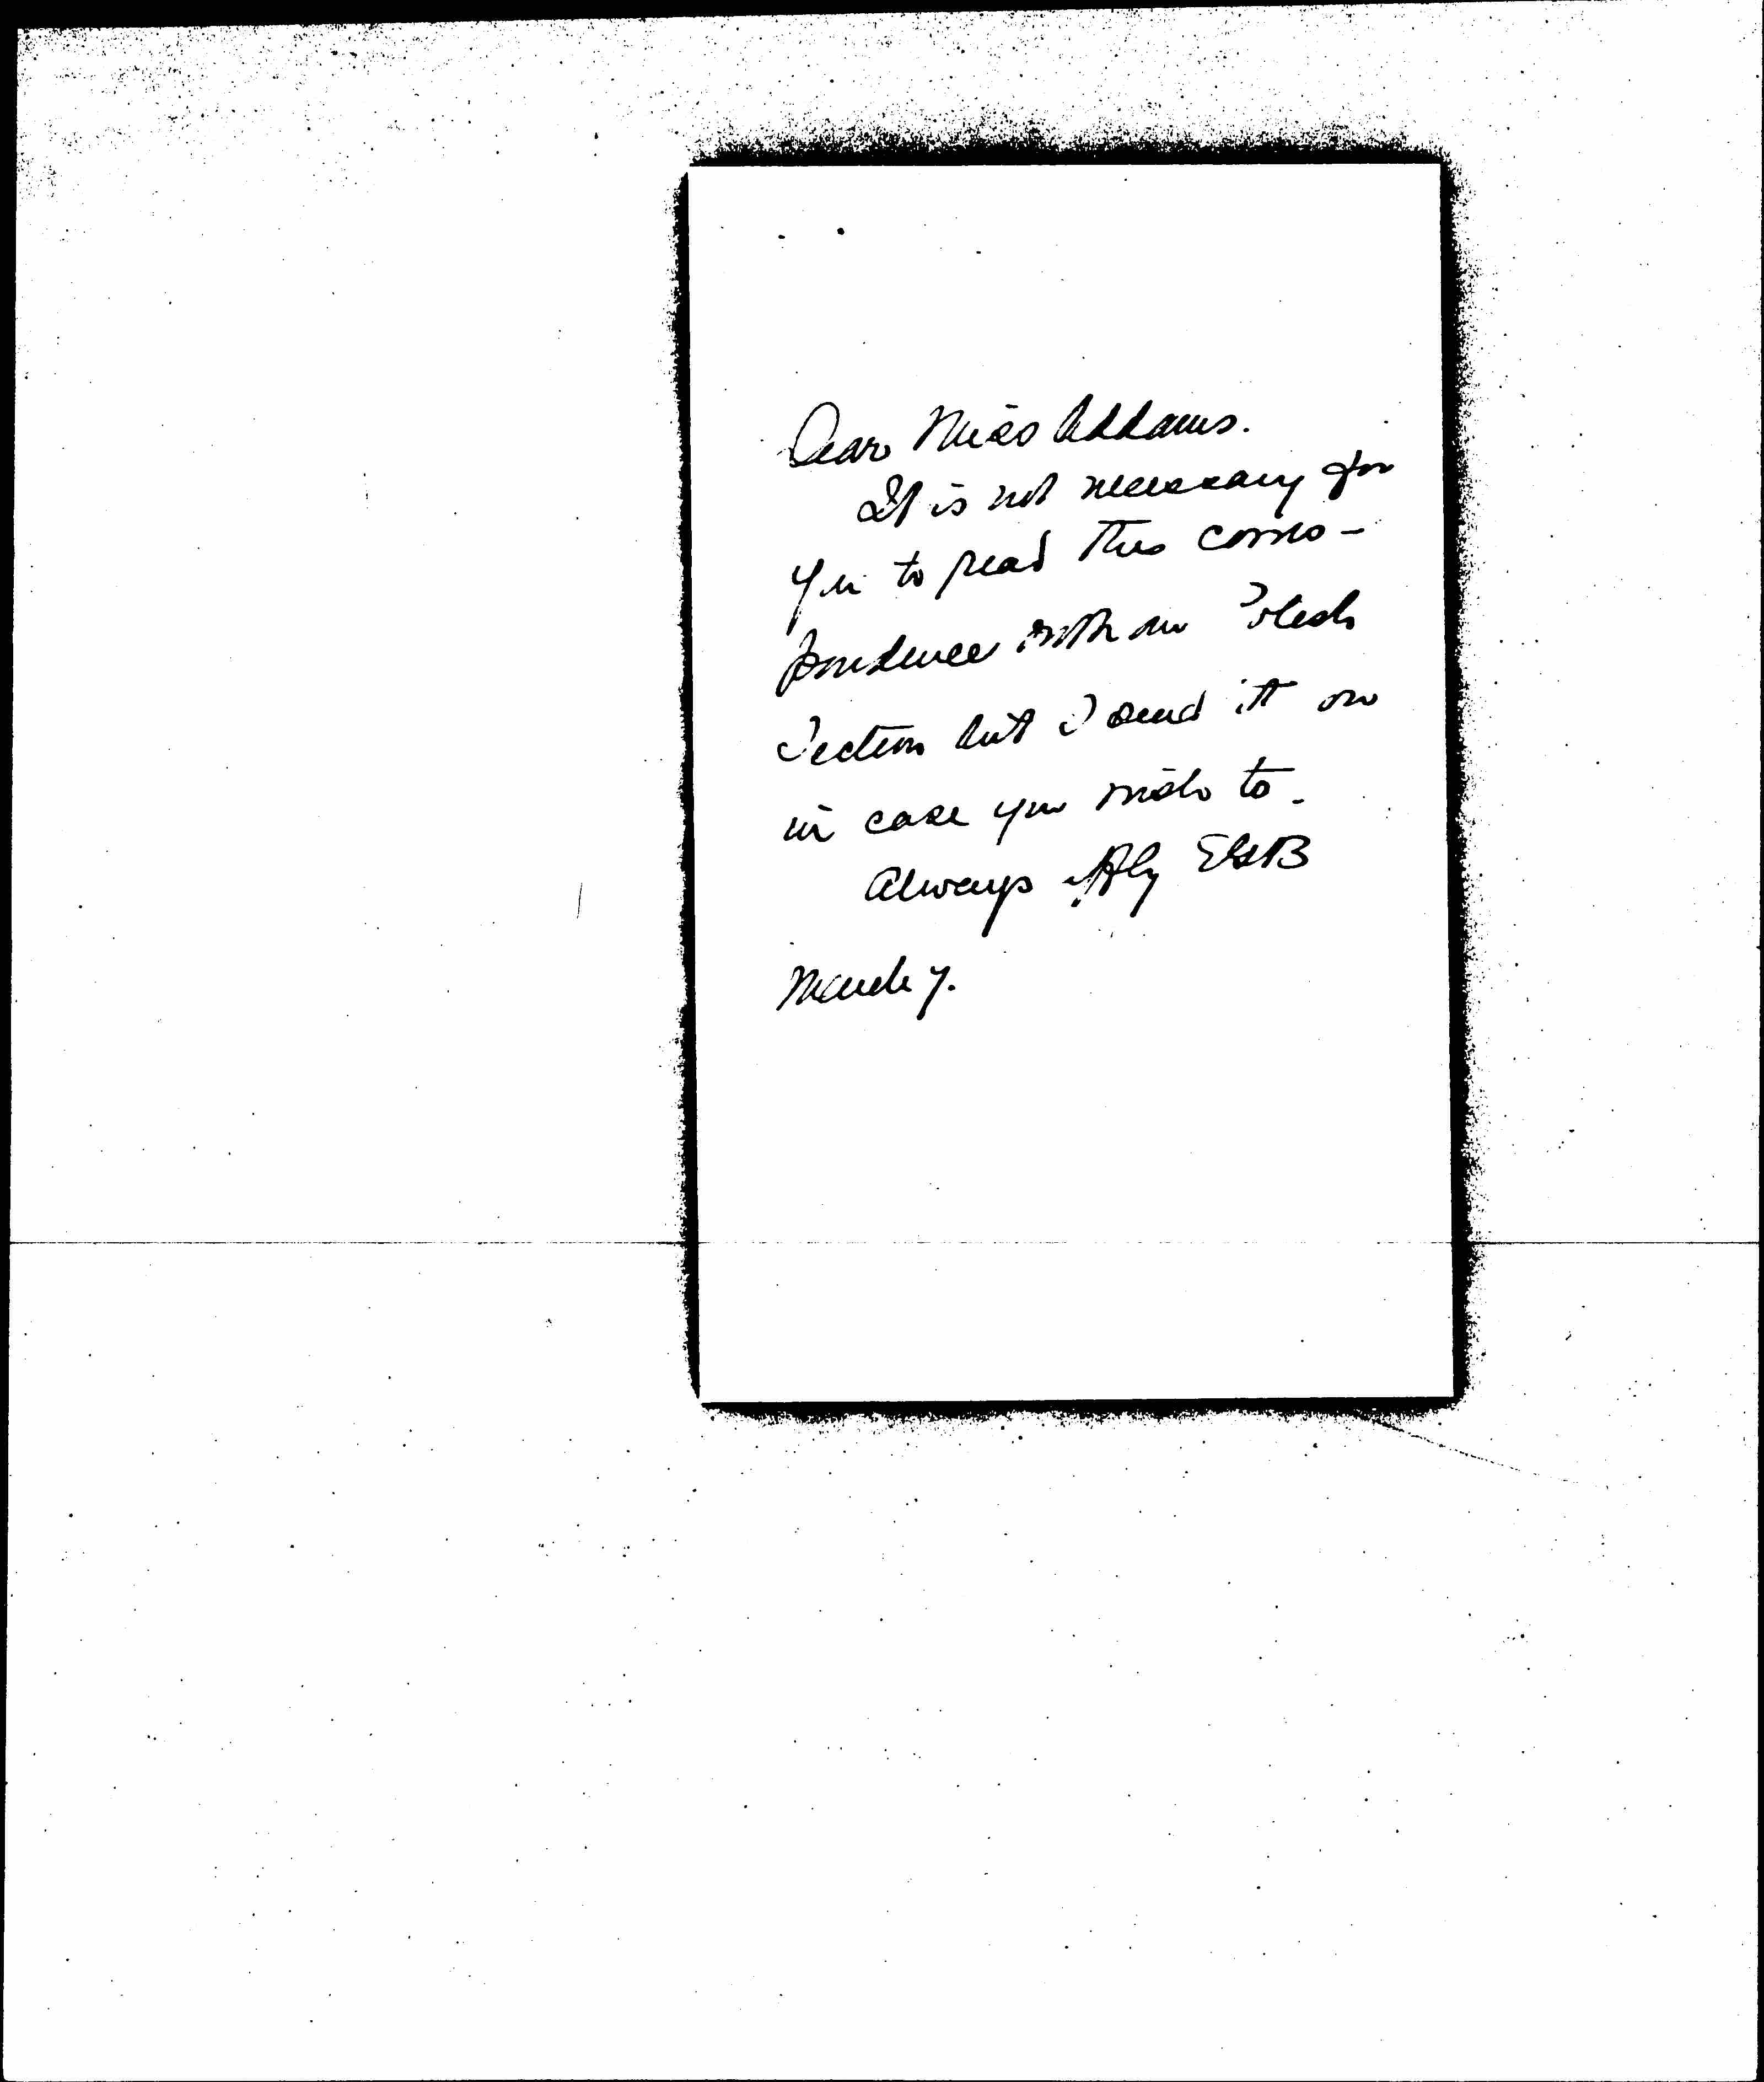 Dear Miss Addams.
It is not necessary for
you to read this corres-
pondence with our Polish
Section but I send it on
in case you wish to.
Always affly EGB
March 7.